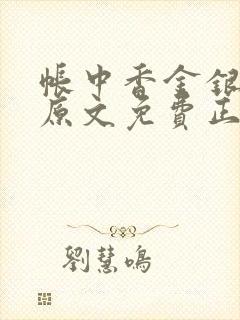 帳中香金銀
原文免費正
劉慧鳴